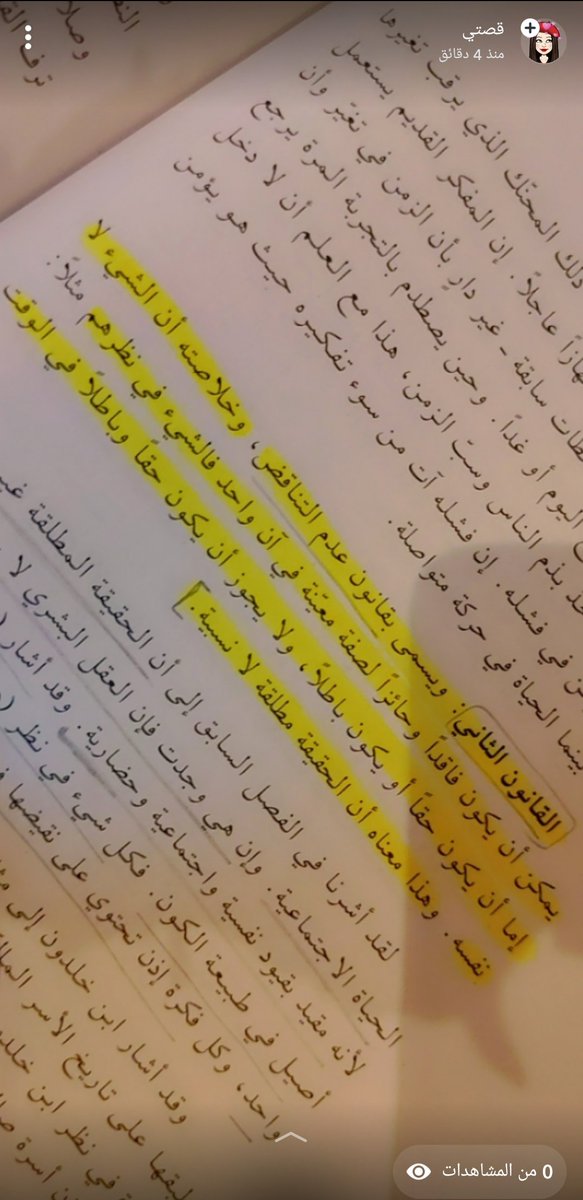 قصتي
منذ 4 دقائق
ذلك المحنّك الذي يرقب تغيرها
عاجلاً. إن المفكر القديم يستعمل
سابقة - غير دارٍ بأن الزمن في تغيّر وأن
اليوم أو غداً. وحين يصطدم بالتجربة المرة يرجع
بذم الناس وسبّ الزمن، هذا مع العلم أن لا دخل
في فشله. إن فشله آت من سوء تفكيره حيث هو يؤمن
بينما الحياة في حركة متواصلة.
القانون الثاني: ويسمى بقانون عدم التناقض، وخلاصته أن الشيء لا
يمكن أن يكون فاقداً وحائزاً لصفة معيّنة في آن واحد فالشيء في نظرهم مثلاً:
إما أن يكون حقاً أو يكون باطلاً، ولا يجوز أن يكون حقاً وباطلاً في الوقت
نفسه. وهذا معناه أن الحقيقة مطلقة لا نسبية.
لقد أشرنا في الفصل السابق إلى أن الحقيقة المطلقة
الحياة الاجتماعية. وإن هي وجدت فإن العقل البشري لا
لأنه مقيد بقيود نفسية واجتماعية وحضارية. وقد أشار
أصيل في طبيعة الكون. فكل شيء في نظر
واحد، وكل فكرة إذن تحتوي على نقيضها
وقد أشار ابن خلدون إلى
على تاريخ الأسر
في نظر ابن
أسرة
0 من المشاهدات